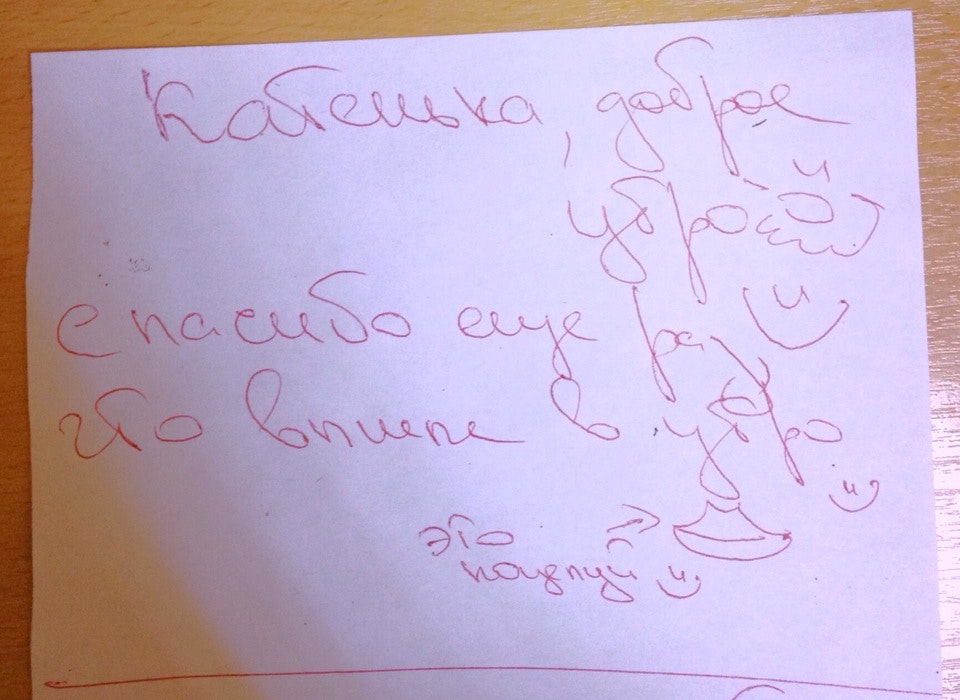 Катенька, доброе
убро
спасибо еще раз
что в убро
это
поцелуй